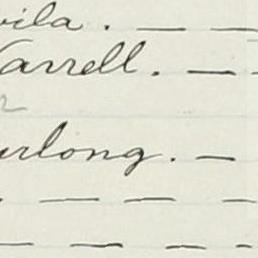 vila. — —
arrell. — -
urlong. —
. — — —
— — — -